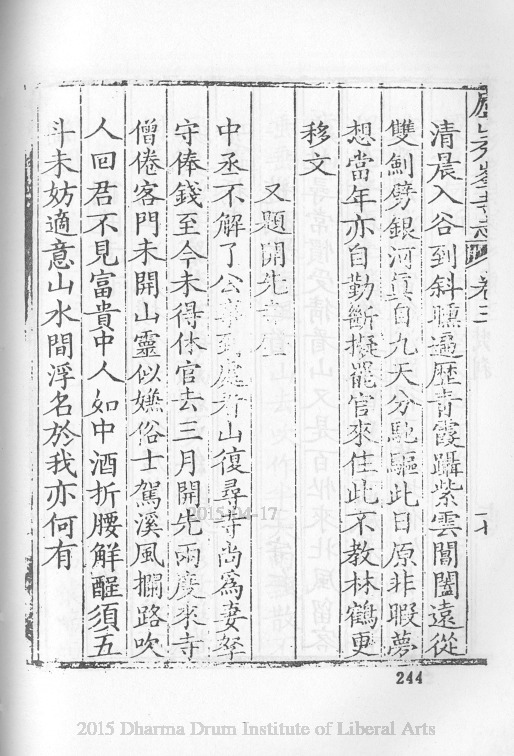 廬山秀峯寺志 卷三
清晨入谷到斜曛遍歷青霞躡紫雲閶闔遠從
雙劍劈銀河眞自九天分馳驅此日原非暇夢
想當年亦自勤斷擬罷官來住此不教林鶴更
移文
又題開先
中丞不解了公看山復尋寺尚爲妻孥
守俸錢至今未得休官去三月開先兩度來寺
僧倦客門未開山靈似嫌俗士駕溪風攔路吹
人回君不見富貴中人如中酒折腰解酲須五
斗未妨適意山水間浮名於我亦何有
2015-04-17
244
2015 Dharma Drum Institute of Liberal Arts